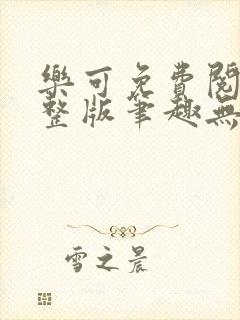 樂可免費閱
整版筆趣無
雪之晨